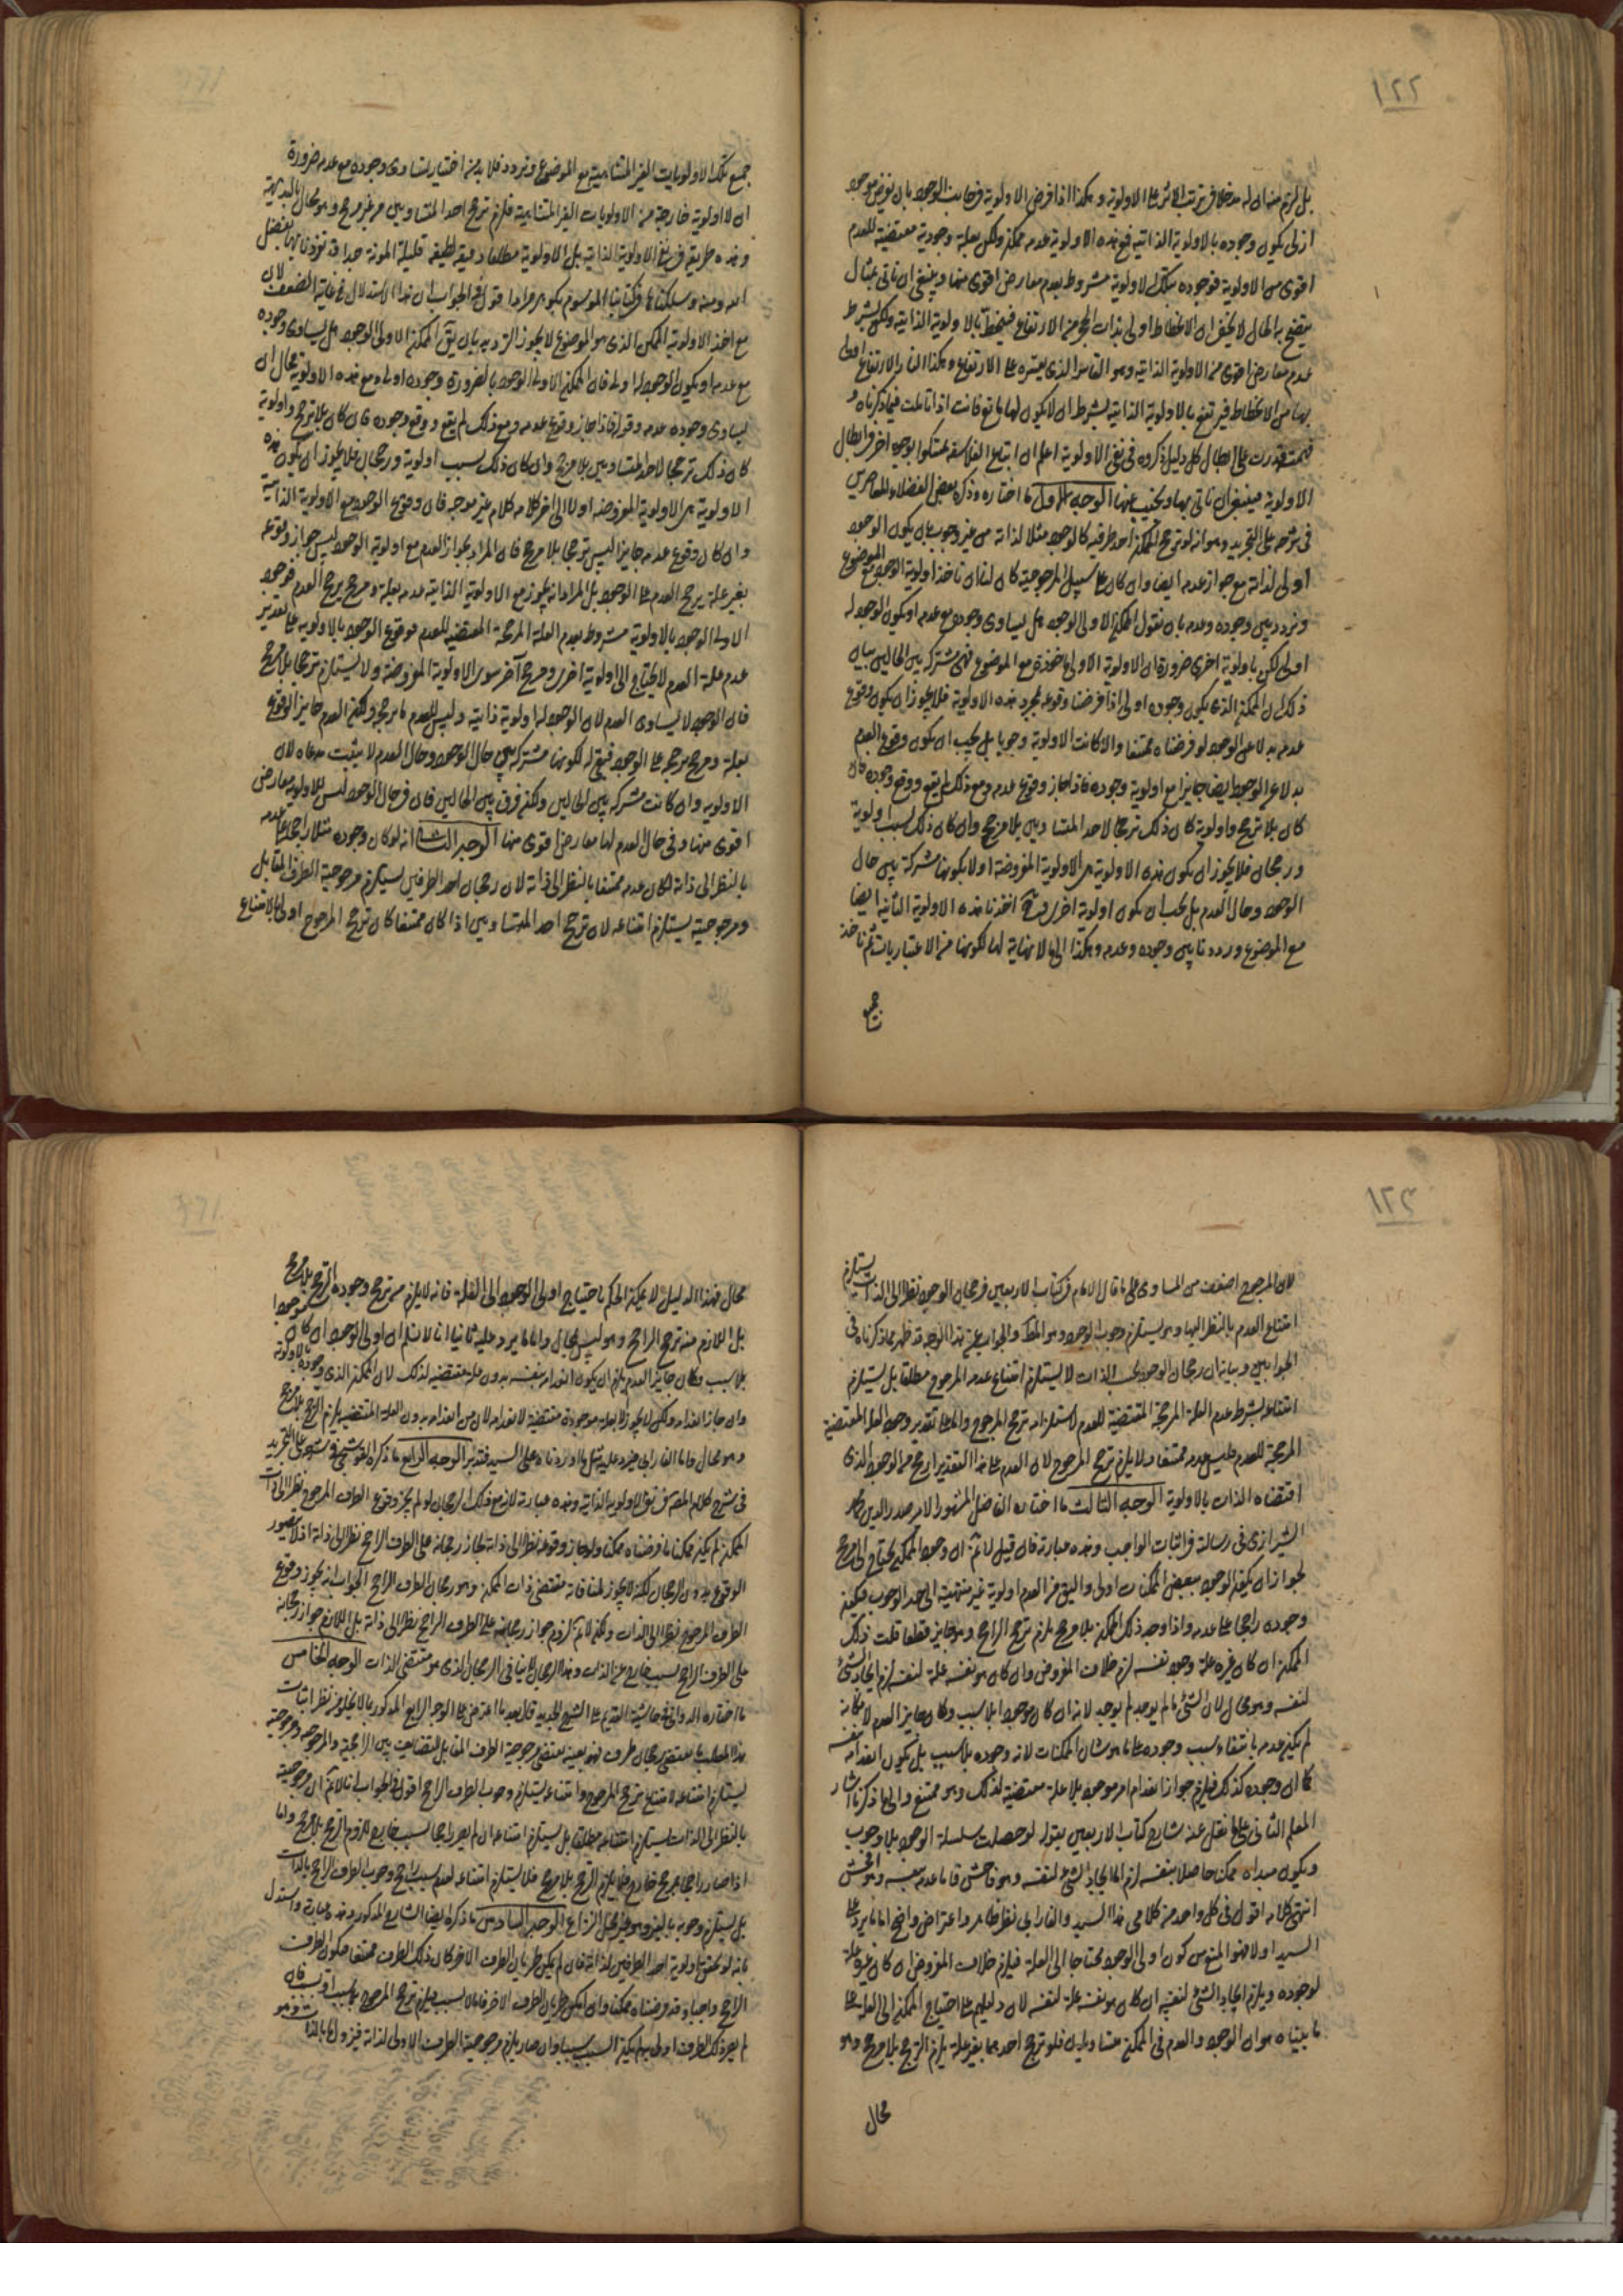 ١٢٢
بل لزم منه ان له مدخلا في ترتب الاثر على الاولوية وهكذا اذا فرض الاولوية في جانب الوجود بان نفرض موجود
ازلى يكون وجوده بالاولوية الذاتية فمع هذه الاولوية عدمه ممكن ولكن بعلة وجودية مقتضية للعدم
اقوى من الاولوية فوجوده بتلك الاولوية مشروط بعدم معارض اقوى منها وينبغى ان ناتى بمثال
يتضح به الحال لا يخفى ان الانحطاط اولى بذات الحجر من الارتفاع فينحط بالاولوية الذاتية ولكن بشرط
عدم معارض اقوى من الاولوية الذاتية وهو القاسر الذى يقسره على الارتفاع وهكذا النار الارتفاع اولى
بها من الانحطاط فيرتفع بالاولوية الذاتية بشرط ان لا يكون لها مانع فانت اذا تاملت فيما ذكرناه و
فهمته قدرت على ابطال كل دليل ذكروه في نفى الاولوية اعلم ان اتباع الفلاسفة تمسكوا بوجوه اخر في ابطال
الاولوية فينبغى ان ناتى بها ونجيب عنها الوجه الاول ما اختاره وذكره بعض الفضلاء المعاصرين
في شرحه على التجريد وهو انه لو ترجح للممكن احد طرفيه كالوجود مثلا لذاته من غير وجوب بان يكون الوجود
اولى لذاته مع جواز عدمه ايضا وان كان على سبيل المرجوحية كان لنا ان ناخذ اولوية الوجود مع الموضوع
ونردد بين وجوده وعدمه بان نقول الممكن الاولى الوجود هل يساوى وجوده مع عدمه او يكون الوجود له
اولى لكن باولوية اخرى ضرورة ان الاولوية الاولى ماخوذة مع الموضوع فهى مشتركة بين الحالين بيان
ذلك ان الممكن الذى يكون وجوده اولى اذا فرضنا وقوعه بمجرد هذه الاولوية فلا يجوز ان يكون وقوع
عدمه بدلا عن الوجود لو فرضناه ممتنعا والا كانت الاولوية وجوبا بل يجب ان يكون وقوع العدم
بدلا عن الوجود ايضا جايزا مع اولوية وجوده فاذا جاز وقوع عدمه ومع ذلك لم يقع ووقع وجوده فان
كان بلا ترجح واولوية كان ذلك ترجحا لاحد المتساويين بلا مرجح وان كان ذلك بسبب اولوية
ورجحان فلا يجوز ان يكون هذه الاولوية هى الاولوية المفروضة اولا لكونها مشتركة بين حال
الوجود وحال العدم بل يجب ان يكون اولوية اخرى فح اخذنا هذه الاولوية الثانية ايضا
مع الموضوع ورددنا بين وجوده وعدمه وهكذا الى ما لا نهاية لها لكونها من الاعتباريات ثم ناخذ
جميع
جميع تلك الاولويات الغير المتناهية مع الموضوع ونردد فلا بد من اختيار تساوى وجوده مع عدمه ضرورة
ان لا اولوية خارجة من الاولويات الغير المتناهية فلزم ترجح احد المتساويين من غير مرجح وهو محال بالبديهة
وهذه طريقة في نفى الاولوية الذاتية بل الاولوية مطلقا دقيقة لطيفة قليلة المونة جدا قد تفردنا بها بفضل
الله ومنه وسلكناها في كتابنا الموسوم بكوهر مراد اقول في الجواب ان هذا الاستدلال في غاية الضعف لان
مع اخذ الاولوية الممكن الذى هو الموضوع لا يجوز الترديد بان يق الممكن الاولى الوجود هل يساوى وجوده
مع عدمه او يكون الوجود له اولى فان الممكن الاولى الوجود بالضرورة وجوده اولى ومع هذه الاولوية محال ان
يساوى وجوده عدمه وقوله فاذا جاز وقوع عدمه ومع ذلك لم يقع ووقع وجوده فان كان بلا ترجح واولوية
كان ذلك ترجحا لاحد المتساويين بلا مرجح وان كان ذلك بسبب اولوية ورجحان فلا يجوز ان يكون هذه
الاولوية هى الاولوية المفروضة اولا الى اخر كلامه كلام غير موجه فان وقوع الوجود مع الاولوية الذاتية
وان كان وقوع عدمه جايزا ليس ترجحا بلا مرجح فان المراد بجواز العدم مع اولوية الوجود ليس جواز وقوعه
بغير علة يرجح العدم على الوجود بل المراد انه يجوز مع الاولوية الذاتية عدمه بعلة ومرجح يرجح العدم فوجود
الاولى الوجود بالاولوية مشروط بعدم العلة المرجحة المقتضية للعدم فوقوع الوجود بالاولوية على تقدير
عدم علة العدم لا يحتاج الى اولوية اخرى ومرجح آخر سوى الاولوية المفروضة ولا يستلزم ترجحا بلا مرجح
فان الوجود لا يساوى العدم لان الوجود له اولوية ذاتية وليس للعدم ما يرجحه ولكن العدم جايز الوقوع
بعلة ومرجح يرجحه على الوجود فبقى له لكونها مشتركة بين حال الوجود وحال العدم لا يثبت مدعاه لان
الاولوية وان كانت مشتركة بين الحالين ولكن فرق بين الحالين فان في حال الوجود ليس للاولوية معارض
اقوى منها وفى حال العدم لها معارض اقوى منها الوجه الثانى انه لو كان وجوده مثلا راجحا على عدمه
بالنظر الى ذاته لكان عدمه ممتنعا بالنظر الى ذاته لان رجحان احد الطرفين يستلزم مرجوحية الطرف المقابل
ومرجوحيته يستلزم امتناعه لان ترجح احد المتساويين اذا كان ممتنعا كان ترجح المرجوح اولى بالامتناع
١٢٣
لان المرجوح اضعف من المساوى على ما قال الامام في كتاب الاربعين فرجحان الوجود نظرا الى الذات يستلزم
امتناع العدم بالنظر اليها وهو يستلزم وجوب الوجود وهو المط والجواب عن هذا الوجه قد ظهر مما ذكرناه في
الجوابين وبيانه ان رجحان الوجود بحسب الذات لا يستلزم امتناع عدمه المرجوح مطلقا بل يستلزم
امتناعه بشرط عدم العلة المرجحة المقتضية للعدم لاستلزامه ترجح المرجوح واما على تقدير وجود العلة المقتضية
المرجحة للعدم فليس عدمه ممتنعا ولا يلزم ترجح المرجوح لان العدم على هذا التقدير ارجح من الوجود الذى
اقتضاه الذات بالاولوية الوجه الثالث ما اختاره الفاضل المشهور الامير صدر الدين محمد
الشيرازى في رسالة في اثبات الواجب وهذه عبارته فان قيل لا نم ان وجود الممكن يحتاج الى مرجح
لجواز ان يكون الوجود ببعض الممكنات اولى واليق من العدم اولوية غير منتهية الى حد الوجوب فيكون
وجوده راجحا على عدمه واذا وجد ذلك الممكن بلا مرجح يلزم ترجح الراجح وهو جايز قطعا قلت ذلك
الممكن ان كان غيره علة وجود نفسه لزم خلاف المفروض وان كان هو نفسه علة لنفسه لزم ايجاد الشئ
لنفسه وهو محال لان الشئ ما لم يوجد لم يوجد لانه ان كان موجودا بلا سبب وكان جايز العدم لامكانه
لم يكن عدمه بانتفاء سبب وجوده على ما هو شان الممكنات لانه وجوده بلا سبب بل يكون انعدامه بنفسه
كما ان وجوده كذلك فيلزم جواز انعدام امر موجود بلا علة مقتضية لذلك وهو ممتنع والى ما ذكرنا اشار
المعلم الثانى على ما نقل عنه شارح كتاب الاربعين بقوله لو حصلت سلسلة الوجود بلا وجوب
ويكون مبداه ممكنا حاصلا بنفسه لزم اما ايجاد الشئ لنفسه وهو فاحش واما عدمه بنفسه وهو افحش
انتهى كلامه اقول في كل واحد من كلامى هذا السيد والفارابى نظر ظاهر واعتراض واضح اما ما يرد على
السيد اولا فهو المنع من كون اولى الوجود محتاجا الى العلة فيلزم خلاف المفروض ان كان غيره علة
لوجوده ويلزم ايجاد الشئ لنفسه ان كان هو نفسه علة لنفسه لان دليلهم على احتياج الممكن الى العلة على
ما بيناه هو ان الوجود والعدم في الممكن متساويان فلو ترجح احدهما بغير علة يلزم الترجح بلا مرجح وهو
محال
محال فهذا الدليل لا يمكن الحكم باحتياج اولى الوجود الى العلة فانه لا يلزم من ترجح وجوده الترجح بلا مرجح
بل اللازم منه ترجح الراجح وهو ليس بمحال واما ما يرد عليه ثانيا انا لا نسلم ان اولى الوجود ان كان موجودا
بلا سبب وكان جايز العدم يلزم ان يكون انعدامه بنفسه بدون علة مقتضية لذلك لان الممكن الذى وجوده بالاولوية
وان جاز انعدامه ولكن لا يجوز الا بعلة موجودة مقتضية لانعدامه لان من انعدامه بدون العلة المقتضية يلزم الترجح بلا مرجح
وهو محال واما الفارابى فيرد عليه مثل ما اوردناه على السيد فتدبر الوجه الرابع ما ذكره القوشجى في شرحه على التجريد
في شرح كلام المص في نفى الاولوية الذاتية وهذه عبارته لان مع ذلك الرجحان لو لم يجز وقوع الطرف المرجوح نظرا الى ذات
الممكن لم يكن ممكنا ما فرضناه ممكنا ولو جاز وقوعه نظرا الى ذاته لجاز رجحانه على الطرف الراجح نظرا الى ذاته اذ لا يتصور
الوقوع بدون الرجحان لكنه لا يجوز لمنافاته مقتضى ذات الممكن وهو رجحان الطرف الراجح الجواب انه يجوز وقوع
الطرف المرجوح نظرا الى الذات ولكن لا نم لزوم جواز رجحانه على الطرف الراجح نظرا الى ذاته بل اللازم جواز رجحانه
على الطرف الراجح بسبب خارج عن الذات وهذا الرجحان لا ينافى الرجحان الذى هو مقتضى الذات الوجه الخامس
ما اختاره الدوانى في حاشيته القديم على الشرح الجديد قال بعد ما اعترض على الوجه الرابع المذكور بما لا يخلو من نظر اثبات
هذا المطلب ما يقتضى رجحان طرف فهو بعينه يقتضى مرجوحية الطرف المقابل للتضايف بين الراجحية والمرجوحية ومرجوحيته
يستلزم امتناعه لامتناع ترجح المرجوح وامتناعه يستلزم وجوب الطرف الراجح اقول والجواب انا لا نم ان مرجوحيته
بالنظر الى الذات يستلزم امتناعه مطلقا بل يستلزم امتناعه ان لم يصر راجحا بسبب خارج للزوم الترجح بلا مرجح واما
اذا صار راجحا بمرجح خارج فلا يلزم الترجح بلا مرجح فلا يستلزم امتناعه لعدم سبب راجح وجوب الطرف الراجح بالذات
بل يستلزم وجوبه بالغير وهو غير محل النزاع الوجه السادس ما ذكره ايضا الشارح المذكور وهذه عبارته واستدل
بانه لو تحقق اولوية احد الطرفين لذاته فان لم يكن طريان الطرف الاخر كان ذلك الطرف ممتنعا فيكون الطرف
الراجح واجبا وقد فرضناه ممكنا وان امكن طريان الطرف الاخر فاما لا بسبب فيلزم ترجح المرجوح بلا سبب او بسبب فان
لم يصر ذلك الطرف اولى به لم يكن السبب سببا وان صار يلزم مرجوحية الطرف الاولى لذاته فيزول ما بالذات وهو